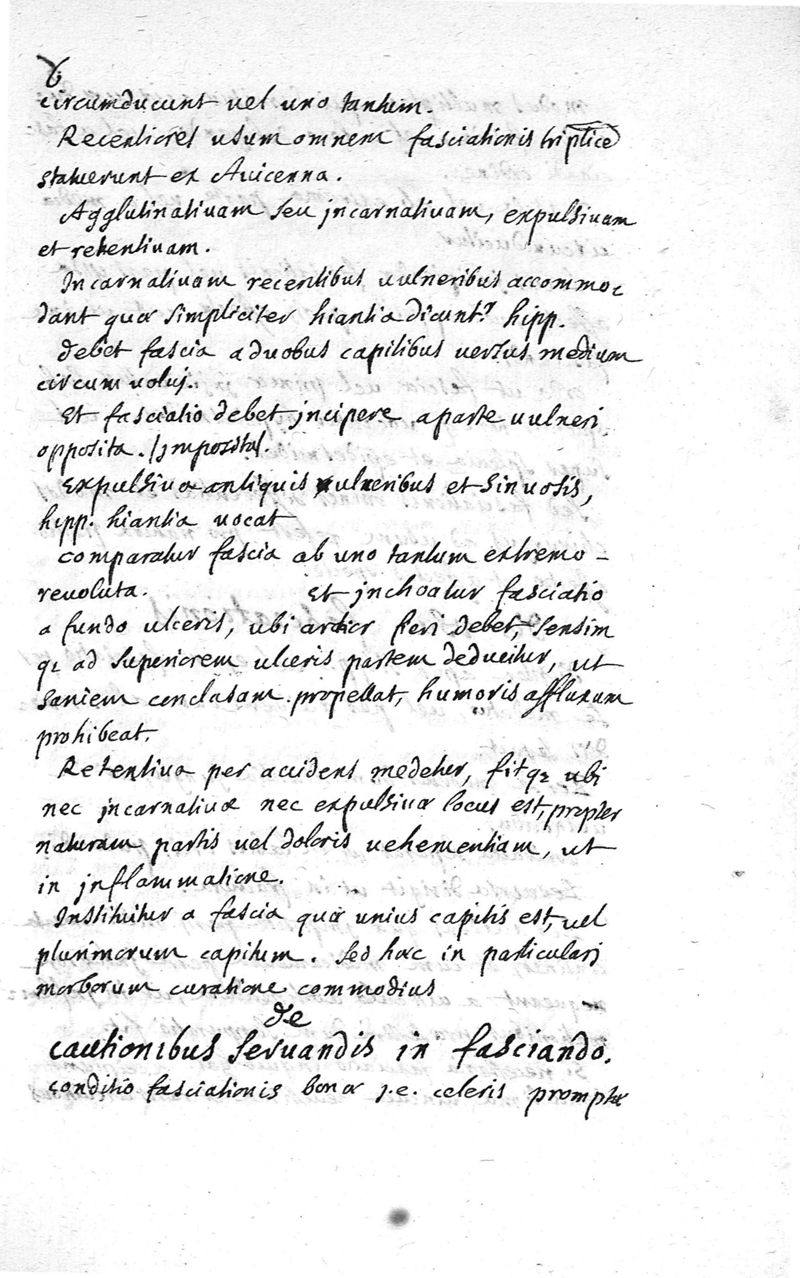 circumducunt vel uno tantum.
Recentiores usum omnem fasciationis triplicē
statuerunt ex Avicenna.
Agglutinativam seu jncarnativam, expulsivam
et retentivam.
Incarnativam recentibus vulneribus accommo
dant quæ simpliciter hiantia dicuntr hipp.
debet fascia a duobus capitibus versus medium
circumvolvj.
Et fasciatio debet jncipere a parte vulneri
opposita. /jmposita/.
Expulsiva antiquis vulneribus et sinuosis,
hipp. hiantia vocat
comparatur fascia ab uno tantum extremo
revoluta. Et jnchoatur fasciatio
a fundo ulceris, ubi arctior fieri debet, sensim
q; ad superiorem ulceris partem deducitur, ut
saniem conclusam propellat, humoris affluxum
prohibeat.
Retentiva per accidens medetur, fitq; ubi
nec jncarnativæ nec expulsivæ locus est, propter
naturam partis vel doloris vehementiam, ut
in jnflammatione.
Instituitur a fascia quæ unius capitis est, vel
plurimorum capitum. Sed hæc in particularj
morborum curatione commodius
de
cautionibus servandis in fasciando.
conditio fasciationis bonæ j.e. celeris promptæ